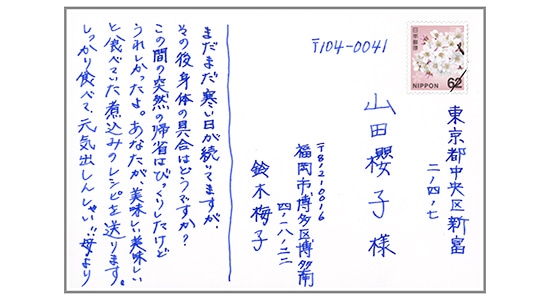 日本郵便
NIPPON
62
〒104-0041
東京都中央区新富
二ノ四ノ七
山田櫻子様
〒812-0016
福岡市博多区博多南
鈴木梅子
まだまだ寒い日が続いてますが、
その後身体の具合はどうですか?
この間の突然の帰省はびっくりしたけど
うれしかったよ。あなたが、美味しい美味しい
と食べていた煮込みのレシピを送ります。
しっかり食べて、元気出しんしゃい!!母より